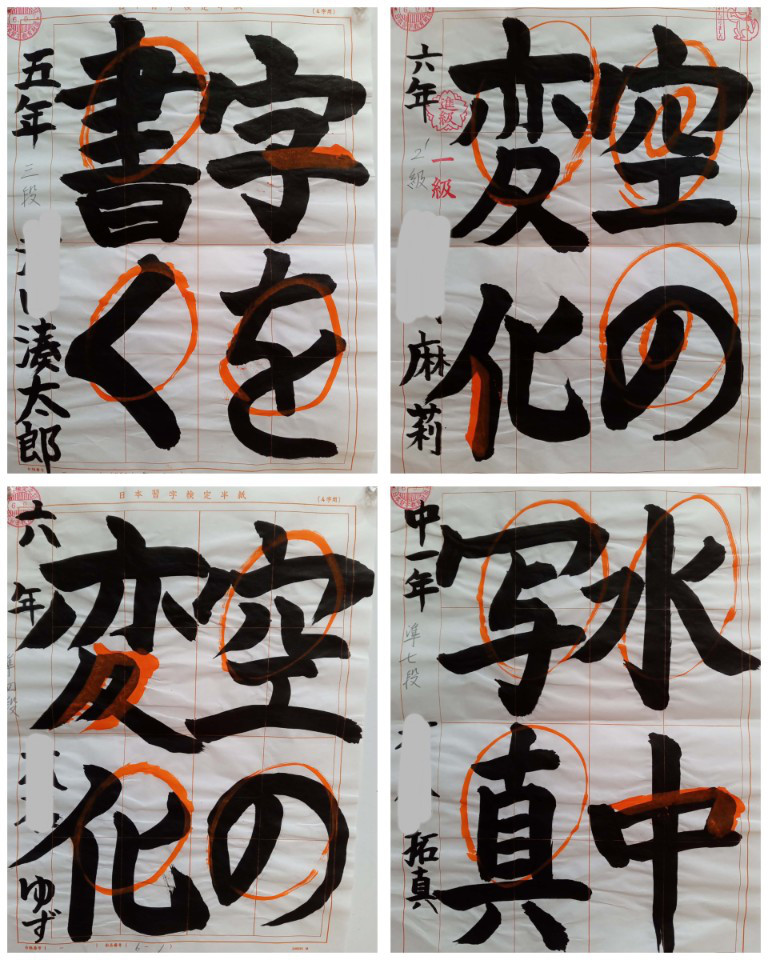 字を
書く
五年
三段
湊太郎
空の
変化
六年
進級
一級
2級
麻莉
日本習字検定半紙
(4字用)
空の
変化
六年
ゆず
水中
写真
中一年
準七段
拓真